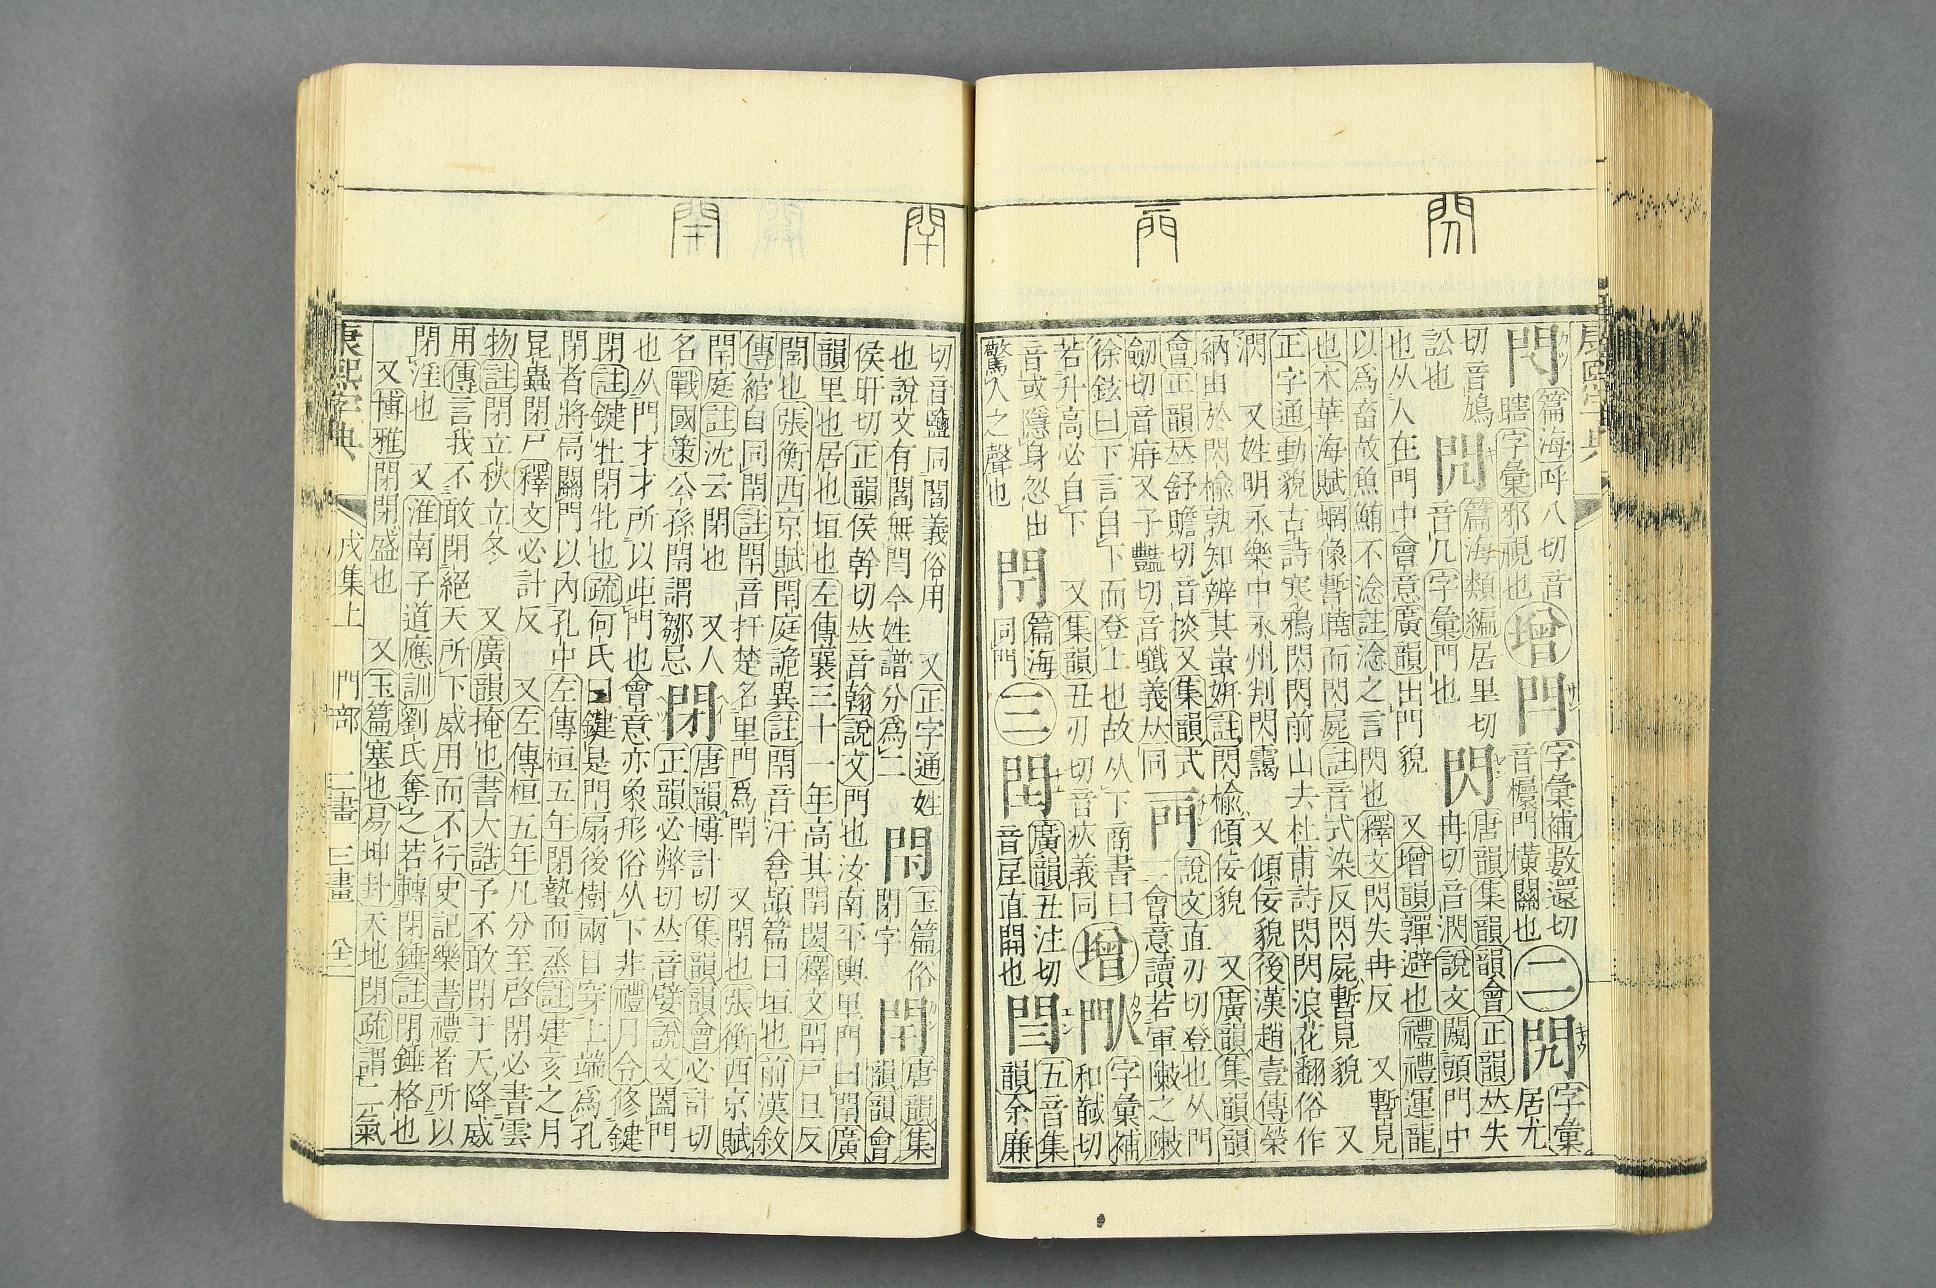 篇海呼八切音
瞎字彙邪視也
增
字彙補數還切
音櫦門橫關也
二
字彙
居尤
切音鳩
訟也
篇海類編居里切
音几字彙門也
閃
唐韻集韻韻會正韻𠀤失
冉切音潤說文闚頭門中
也从人在門中會意廣韻出門貌 又增韻彈避也禮禮運龍
以爲畜故魚鮪不淰註淰之言閃也釋文閃失冉反 又暫見
也木華海賦蝄像暫曉而閃屍註音式染反閃屍暫見貌 又
正字通動貌古詩寒鴉閃閃前山去杜甫詩閃閃浪花翻俗作
又姓明永樂中永州判閃靄 又傾佞貌後漢趙壹傳榮
納由於閃榆孰知辨其蚩妍註閃榆傾佞貌 又廣韻集韻韻
會正韻𠀤舒贍切音掞又集韻式
劒切音又子豔切音義𠀤同
說文直刃切登也从門
二會意讀若軍敶之敶
徐鉉曰下言自下而登上也故从下商書曰
若升高必自下 又集韻丑刃切音疢義同
增
字彙補
和馘切
音或隱身忽出
驚人之聲也
篇海
同門
三
廣韻丑注切
音直開也
閆
五音集
韻余廉
切音鹽同閻義俗用 又正字通姓
也說文有閻無閆今姓譜分爲二
閇
玉篇俗
閉字
閈
唐韻集
韻韻會
侯旰切正韻侯幹切𠀤音翰說文門也汝南平輿里門曰閈廣
韻里也居也垣也左傳襄三十一年高其閈閎釋文閈戸旦反
閭也張衡西京賦閈庭詭異註閈音汗倉頡篇曰垣也前漢敘
傳綰自同閈註閈音扞楚名里門爲閈 又閉也張衡西京賦
閈庭註沈云閉也 又人
名戰國策公孫閈謂鄒忌
閉
唐韻博計切集韻韻會必計切
正韻必弊切𠀤音嬖說文闔門
也从門才才所以歫門也會意亦象形俗从下非禮月令修鍵
閉註鍵牡閉牝也疏何氏曰鍵是門扇後樹兩目穿上端爲孔
閉者將扃關門以內孔中左傳桓五年閉蟄而烝註建亥之月
昆蟲閉戸釋文必計反 又左傳桓五年凡分至啓閉必書雲
物註閉立秋立冬 又廣韻掩也書大誥予不敢閉于天降威
用傳言我不敢閉絕天所下威用而不行史記樂書禮者所以
閉淫也 又淮南子道應訓劉氏奪之若轉閉錘註閉錘格也
又博雅閉閉盛也 又玉篇塞也易坤卦天地閉疏謂二氣
康熙字典 戌集上 門部 二畫 三畫